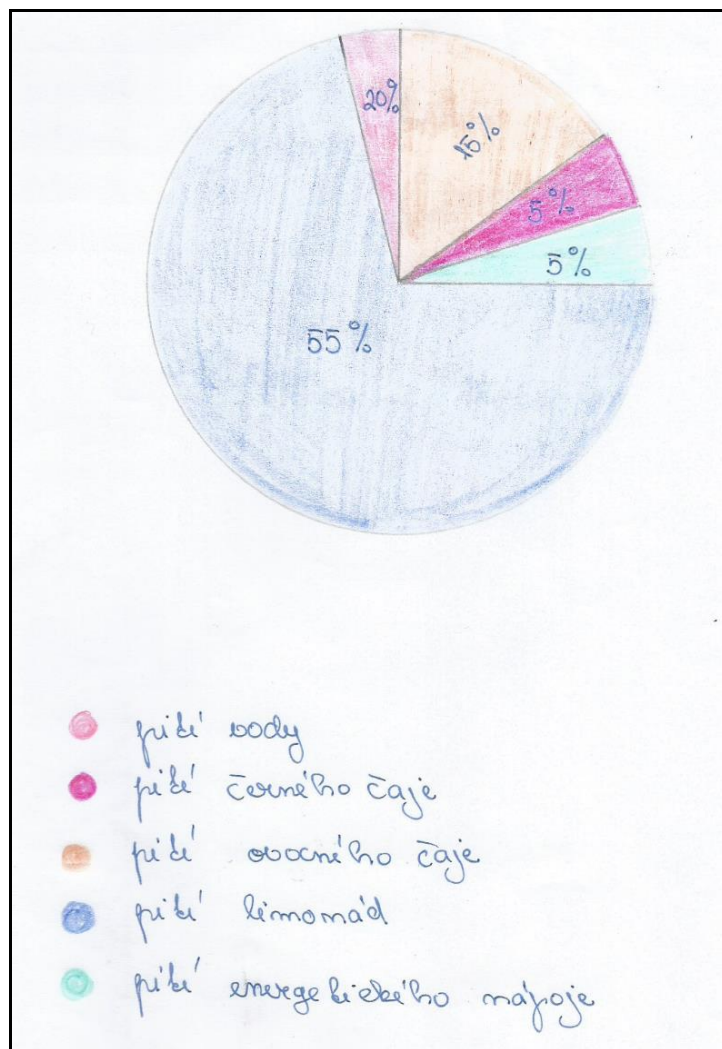 20%
15%
5%
5%
55%
pití vody
pití černého čaje
pití ovocného čaje
pití limonád
pití energetického nápoje